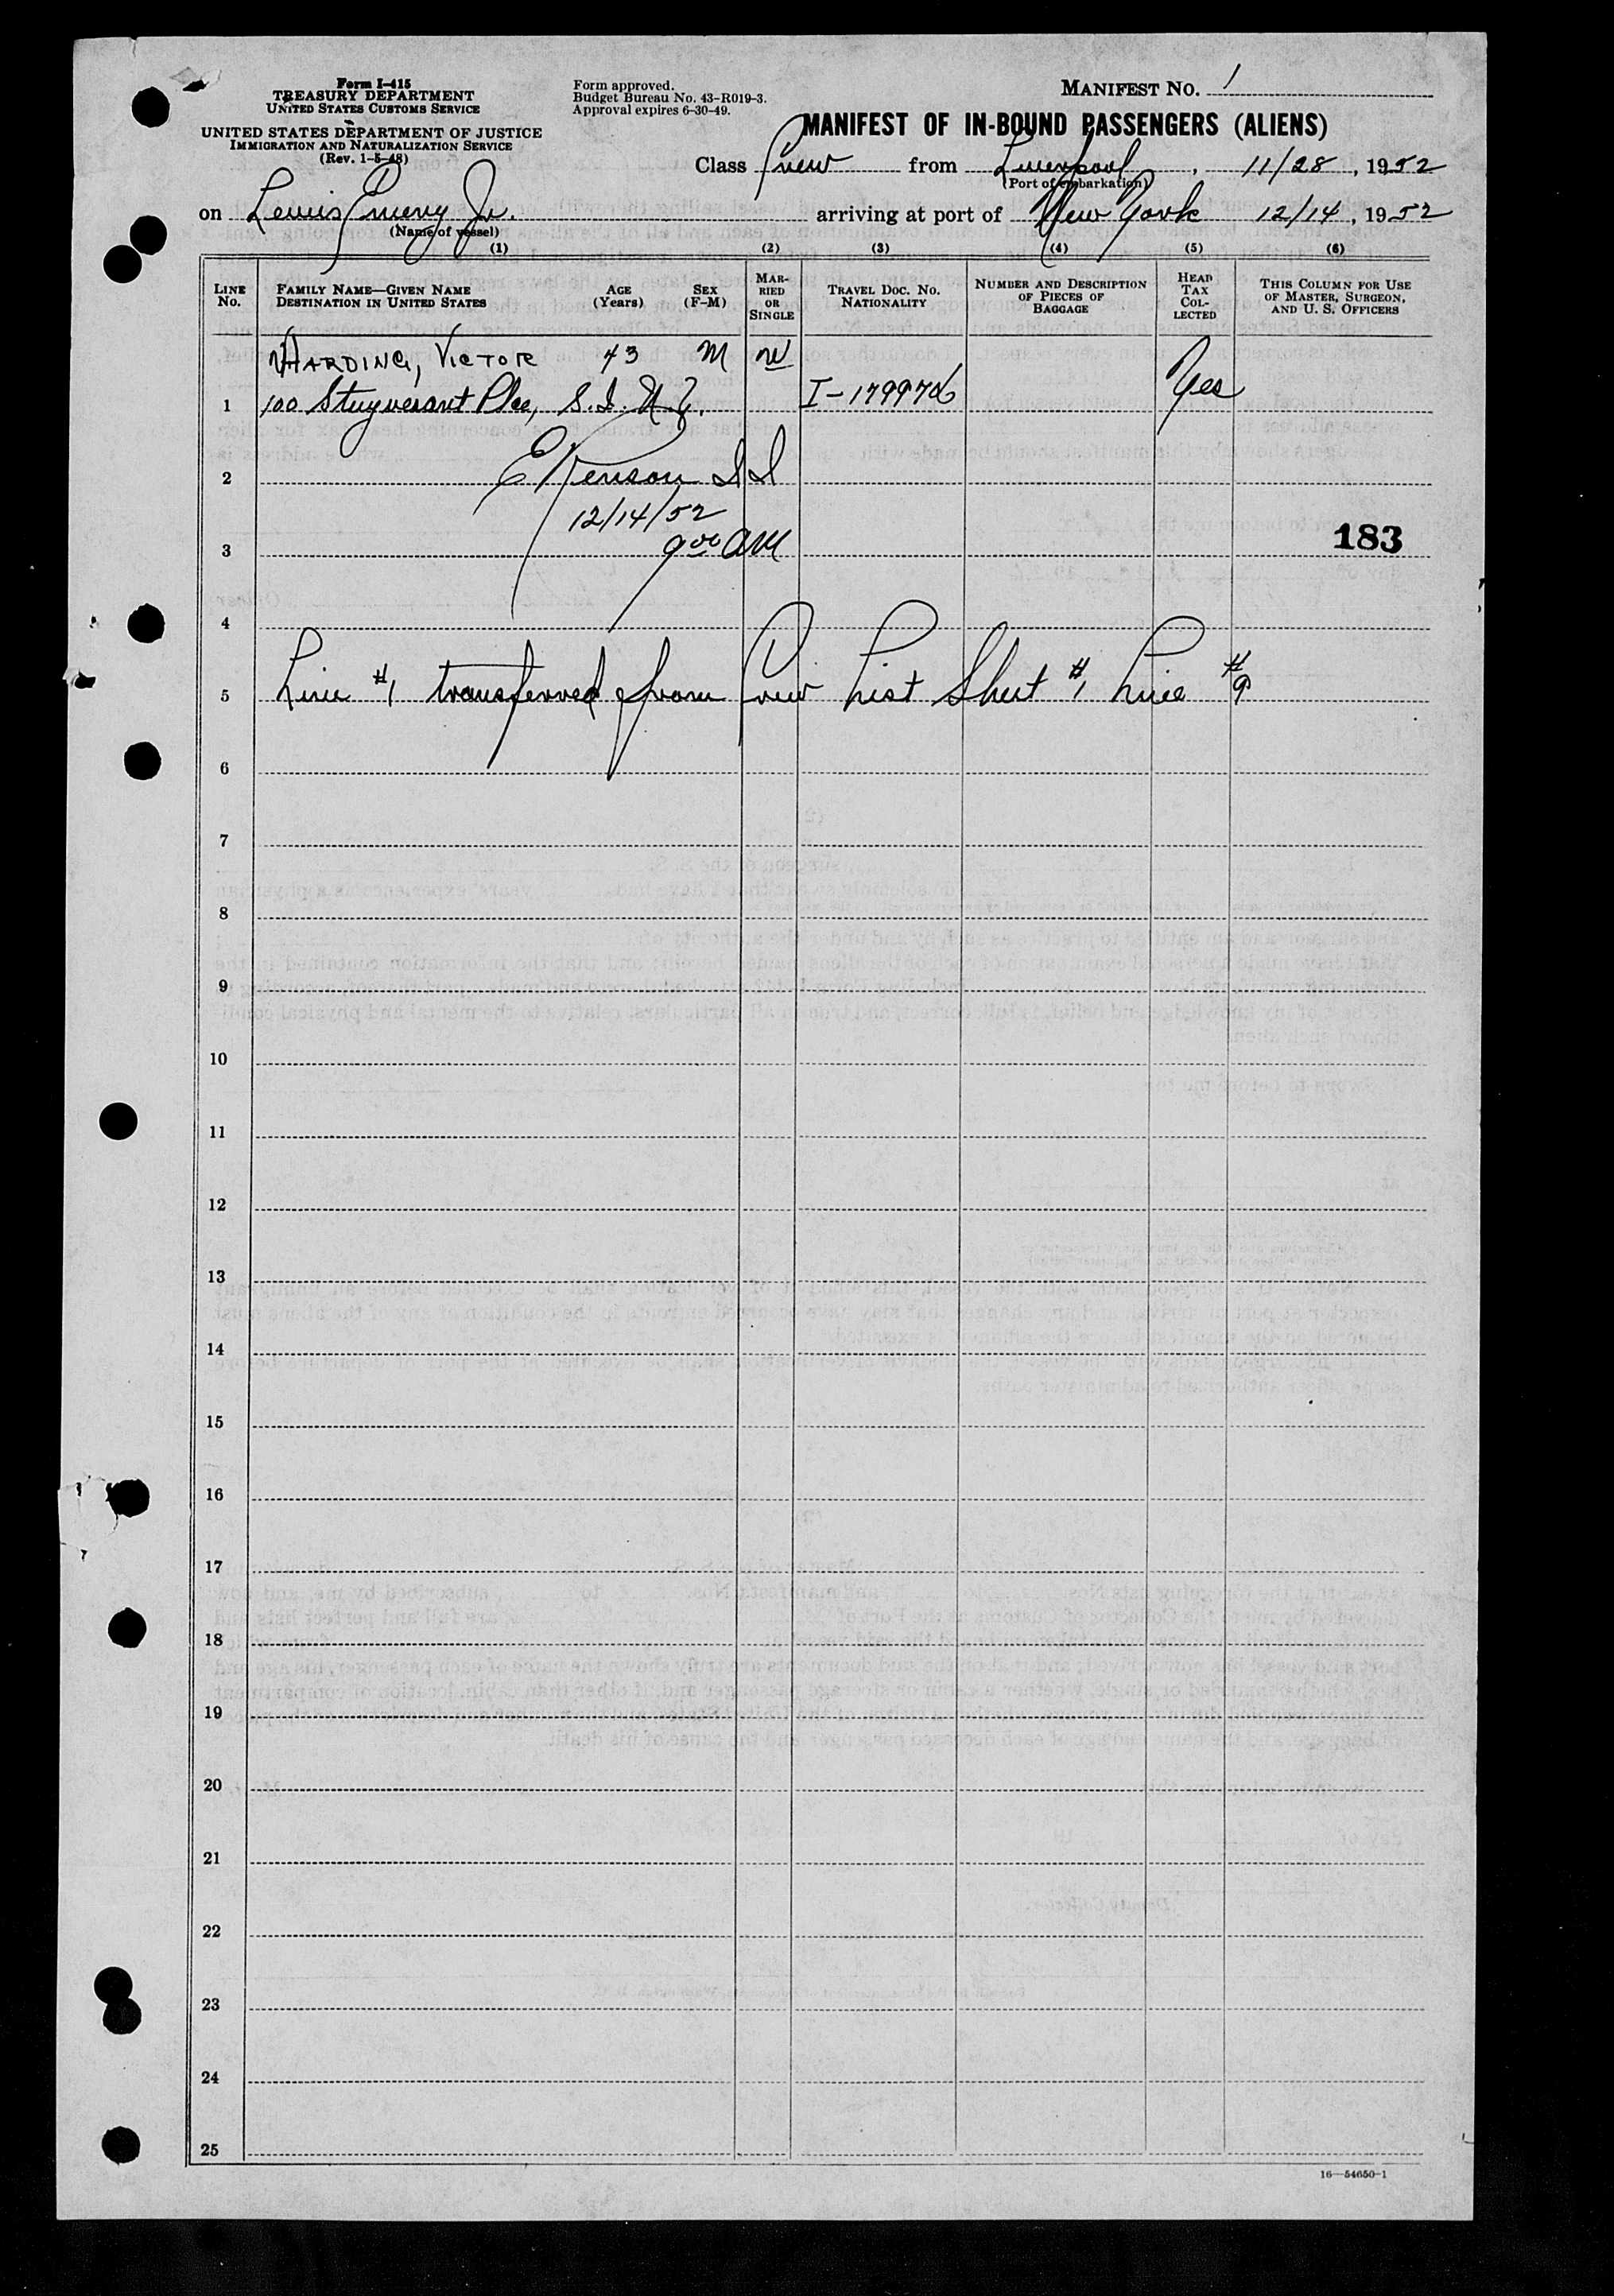 Form I-415
TREASURY DEPARTMENT
UNITED STATES CUSTOMS SERVICE
UNITED STATES DEPARTMENT OF JUSTICE
IMMIGRATION AND NATURALIZATION SERVICE
(Rev. 1-5-48)
Form approved.
Budget Bureau No. 43-R019-3.
Approval expires 6-30-49.
MANIFEST NO. 1
MANIFEST OF IN-BOUND PASSENGERS (ALIENS)
Class Crew from Liverpool, 11/28, 1952
(Port of embarkation)
on Lewis Emery Jr. arriving at port of New York 12/14, 1952
(Name of vessel)
(1) (2) (3) (4) (5) (6)
LINE No. FAMILY NAME—GIVEN NAME DESTINATION IN UNITED STATES AGE (Years) SEX (F-M) MARRIED OR SINGLE TRAVEL DOC. NO. NATIONALITY NUMBER AND DESCRIPTION OF PIECES OF BAGGAGE HEAD TAX COLLECTED THIS COLUMN FOR USE OF MASTER, SURGEON, AND U. S. OFFICERS
HARDING, VICTOR 43 M W Yes
1 100 Stuyvesant Plce, S.I. N.Y. I-179976
2 E Kenson
12/14/52
3 9 00 AM 183
4
5 Line #1 transferred from Crew List Sheet #1 Line #9
6
7
8
9
10
11
12
13
14
15
16
17
18
19
20
21
22
23
24
25
16—54650-1